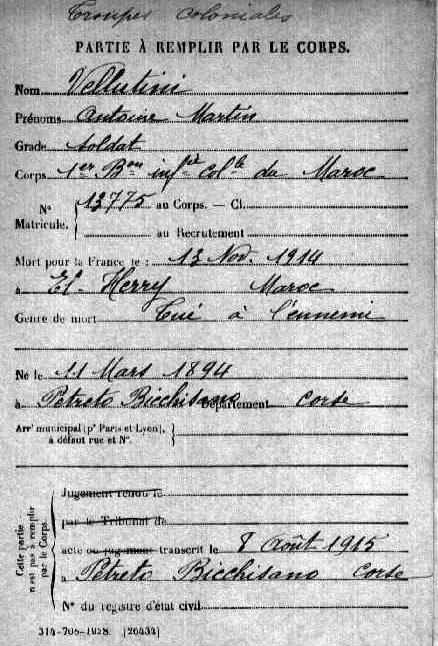 Troupes coloniales
PARTIE À REMPLIR PAR LE CORPS.
Nom Vellutini
Prénoms Antoine Martin
Grade soldat
Corps 1er Bon infie cole du Maroc
N° Matricule. 13775 au Corps. — Cl.
au Recrutement
Mort pour la France le : 13 Nov. 1914
à El-Herry Maroc
Genre de mort Tué à l'ennemi
Né le 11 Mars 1894
à Petreto Bicchisano Département Corse
Arrt municipal (pr Paris et Lyon),
à défaut rue et N°.
Cette partie
n'est pas à remplir
par le Corps.
Jugement rendu le
par le Tribunal de
acte ou jugement transcrit le 8 Août 1915
à Petreto Bicchisano Corse
N° du registre d'état civil
314-708-1928. [26434]